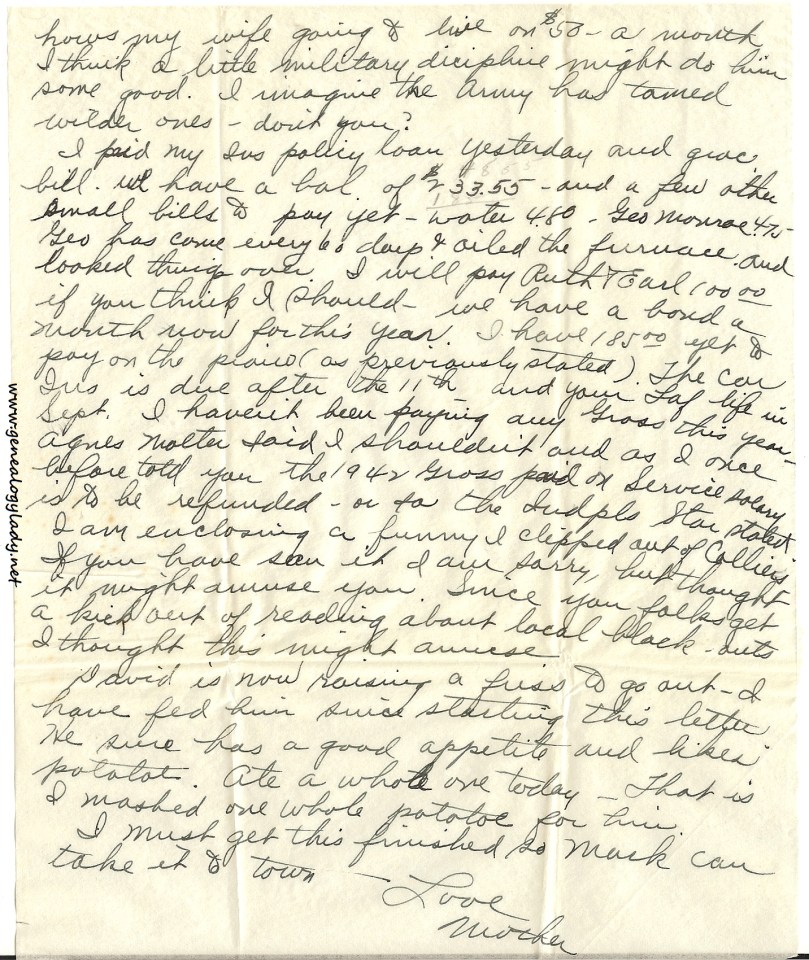 hows my wife going to live on $50 - a month
I think a little military dicipline might do him
some good. I imagine the Army has tamed
wilder ones - don't you?
I paid my Ins policy loan yesterday and groc.
bill. We have a bal. of $233.55 - and a few other
small bills to pay yet - water 4.80 - Geo Monroe 4.75
Geo has come every 60 days & oiled the furnace and
looked things over. I will pay Ruth & Earl 100 00
if you think I should - we have a bond a
month now for this year. I have 185 00 yet to
pay on the piano (as previously stated). The car
Ins is due after the 11th and your Laf life in
Sept. I haven't been paying any Gross this year -
Agnes Molter said I shouldn't and as I once
before told you the 1942 Gross paid on Service salary
is to be refunded - or so the Indpls Star stated.
I am enclosing a funny I clipped out of Colliers
If you have seen it I am sorry, but thought
it might amuse you. Since you folks get
a kick out of reading about local black-outs
I thought this might amuse
David is now raising a fuss to go out - I
have fed him since starting this letter
He sure has a good appetite and likes
potatot. Ate a whole one today - That is
I mashed one whole potatoe for him.
I must get this finished so Mark can
take it to town -
Love
Mother
www.genealogylady.net